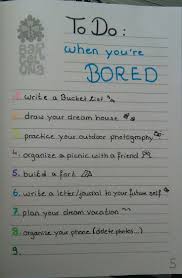 To Do:
BARCELONA
when you're
BORED
1. write a Bucket List
2. draw your dream house
3. practice your outdoor photography
4. organize a picnic with a friend
5. build a fort
6. write a letter/journal to your future self
7. plan your dream vacation
8. organise your phone (delete photos...)
9.
5